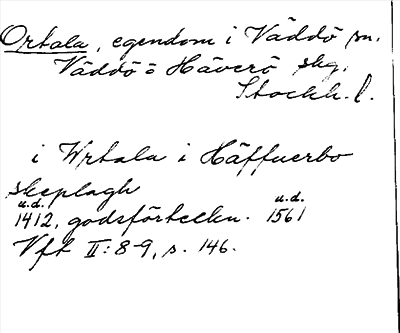 Ortala, egendom i Väddö sn.
Väddö ö Häverö skg.
Stockh. l.
i Wrtala i Häffuerbo
skeplagh
u.d. u.d.
1412, godsförteckn. 1561
Vft II:8-9, s. 146.